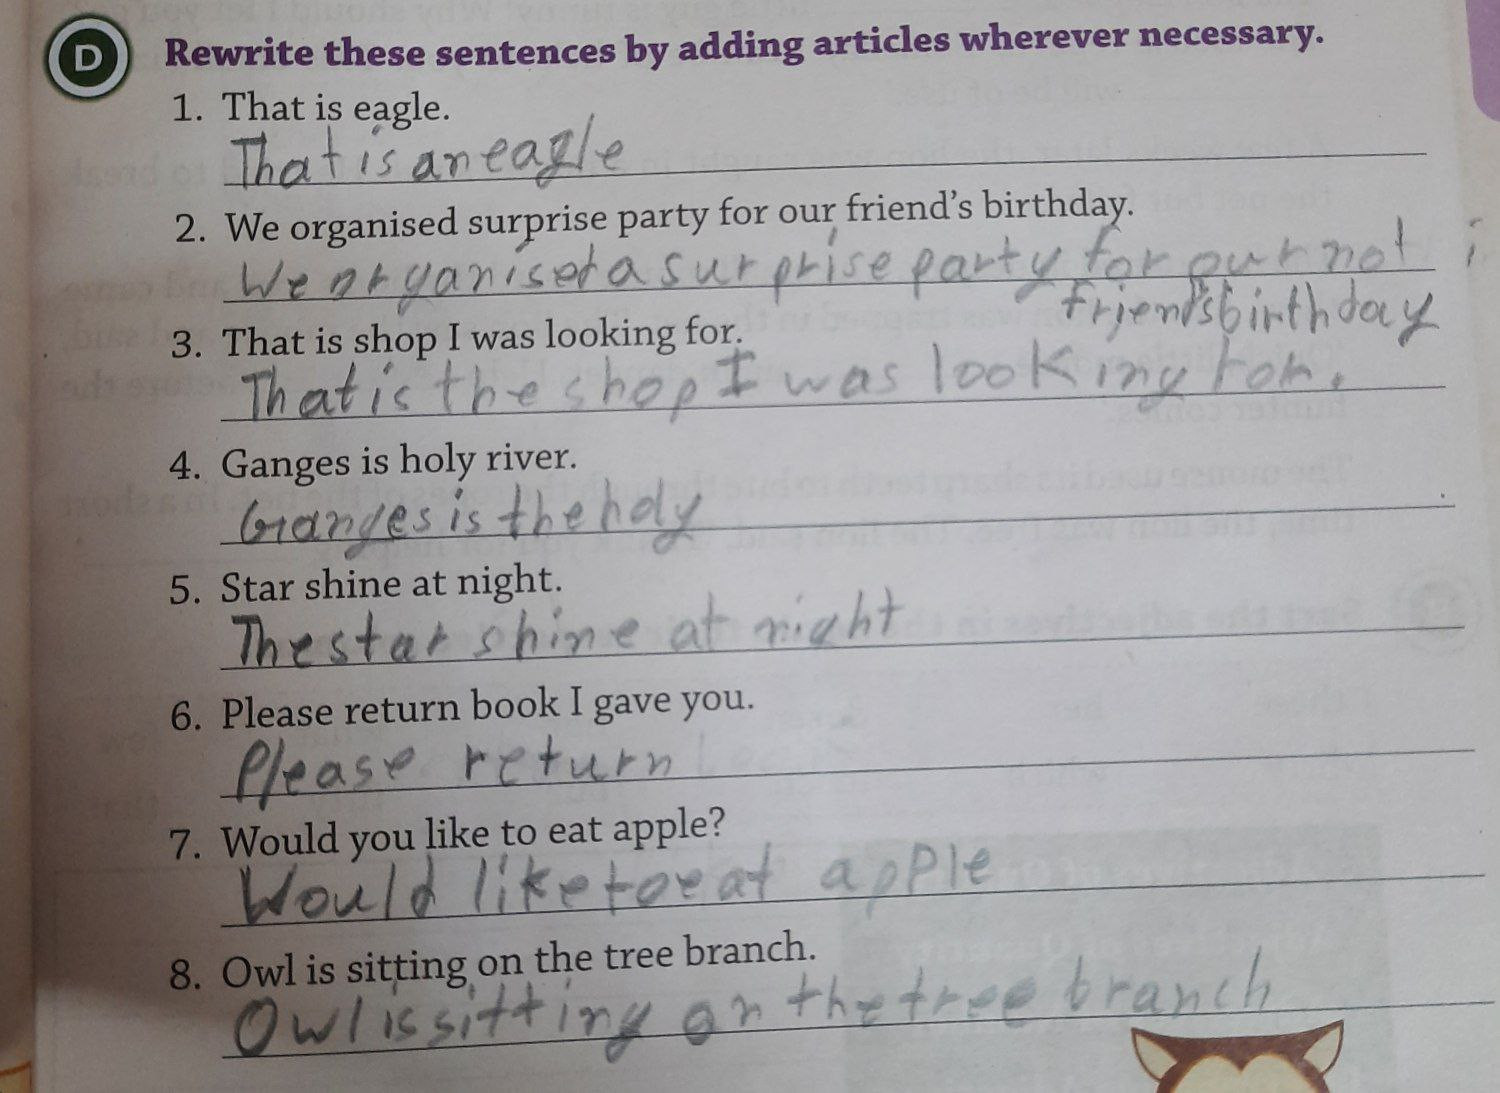 D Rewrite these sentences by adding articles wherever necessary.
1. That is eagle.
That is an eagle
2. We organised surprise party for our friend's birthday.
We organised a surprise party for our not i
friend's birthday
3. That is shop I was looking for.
That is the shop I was looking for.
4. Ganges is holy river.
Ganges is the holy
5. Star shine at night.
The star shine at night
6. Please return book I gave you.
Please return
7. Would you like to eat apple?
Would like to eat apple
8. Owl is sitting on the tree branch.
Owl is sitting on the tree branch